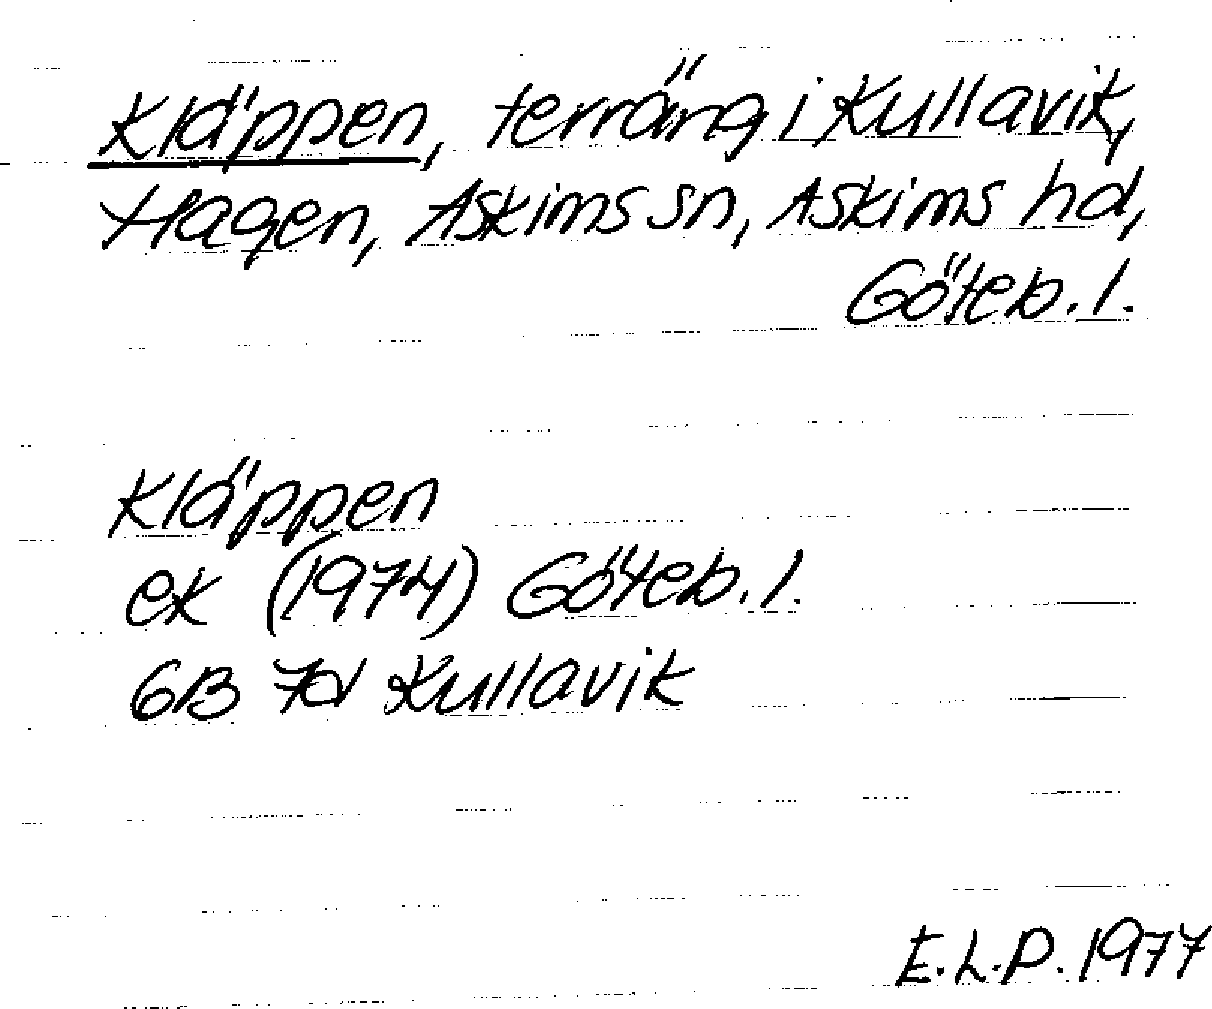 Kläppen, terräng i Kullavik,
Hagen, Askims sn, Askims hd,
Göteb. l.
Kläppen
ek (1974) Göteb. l.
6B 7d Kullavik
E.L.P. 1977